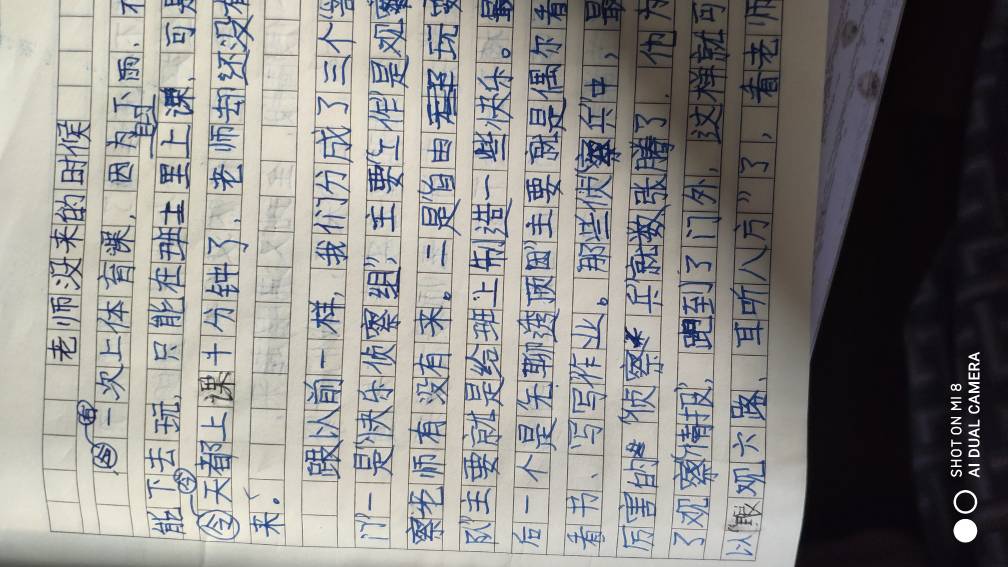 老师没来的时候
一次上体育课，因为下雨，不
能下去玩，只能在班里上课，可是
今天都上课十分钟了，老师却还没有
来。
跟以前一样，我们分成了三个"
门"一是"快乐侦察组"，主要工作是观察
察老师有没有来。二是"自由玩
队"主要就是给班上制造一些快乐。最
后一个是"无聊透顶团"主要就是偶尔看
看书、写写作业。那些侦察兵中，最
厉害的"侦察兵"就数张腾了，他为
了观察情报，跑到了门外，这样就可
以"眼观六路、耳听八方"了，看老师
SHOT ON MI 8
AI DUAL CAMERA